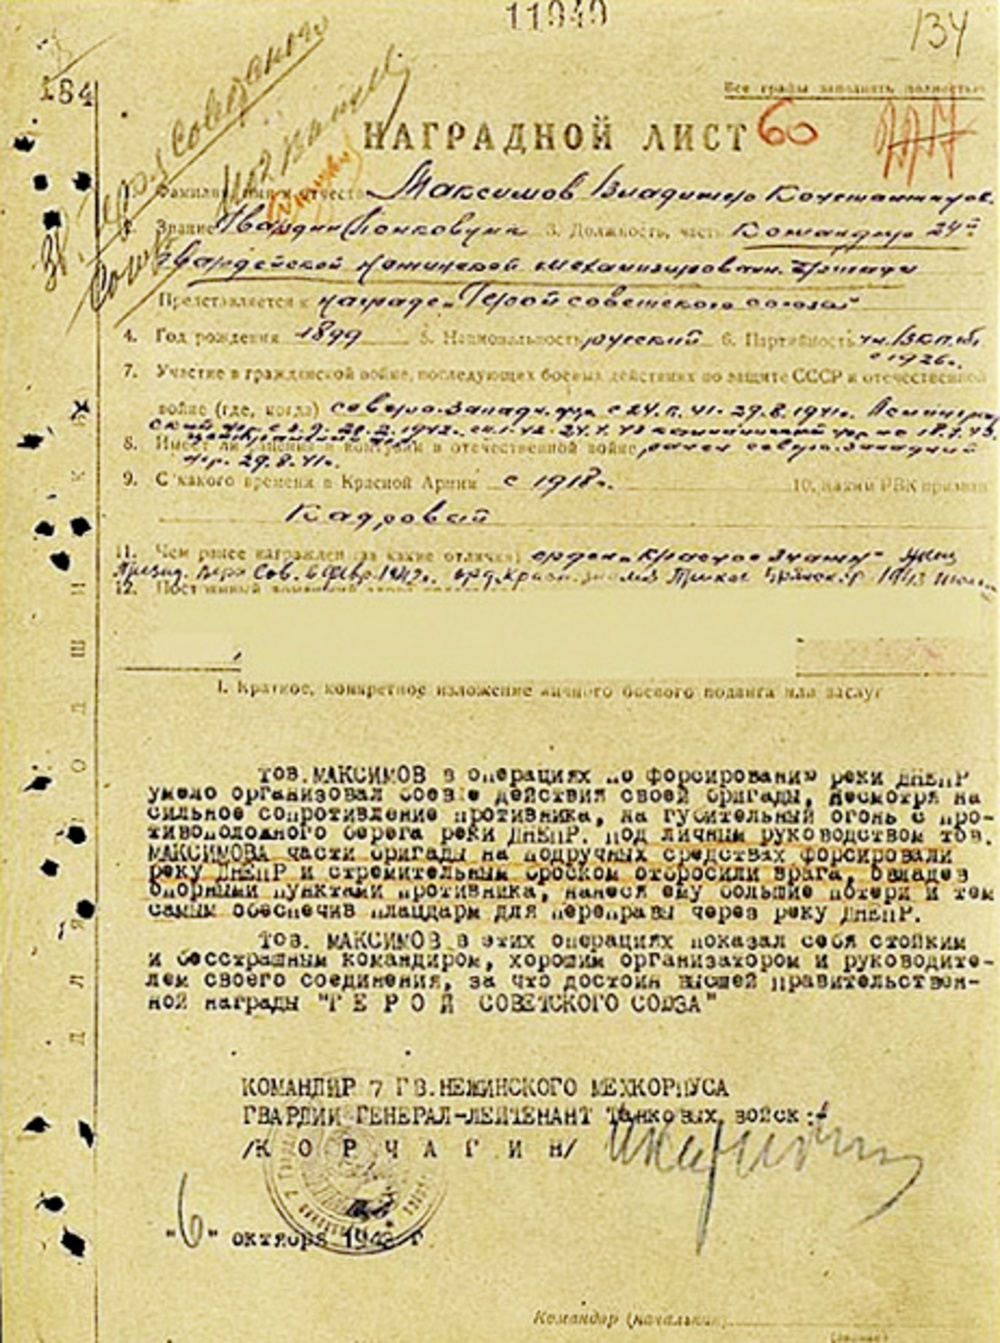 11949
134
184
Все графы заполнять полностью
НАГРАДНОЙ ЛИСТ 60
Максимов Владимир
2. Звание Гвардии Полковник 3. Должность, часть Командир 24й
Гвардейской механизированн. бригады
Представляется к награде „Герой советского союза"
4. Год рождения 1899 5. Национальность русский 6. Партийность чл. ВКП(б)
с 1926г.
7. Участие в гражданской войне, последующих боевых действиях по защите СССР и отечественной
войне (где, когда)
8. в отечественной войне ранен северо-западный
фр. 29.8.41г.
9. С какого времени в Красной Армии с 1918г. 10. Каким РВК призван
Кадровый
11. Чем ранее награжден (за какие отличия) орден „Красное Знамя"
12.
1. Краткое, конкретное изложение личного боевого подвига или заслуг
Тов. МАКСИМОВ в операциях по форсированию реки ДНЕПР
умело организовал боевые действия своей бригады, несмотря на
сильное сопротивление противника, на губительный огонь с про-
тивоположного берега реки ДНЕПР. под личным руководством тов.
МАКСИМОВА части бригады на подручных средствах форсировали
реку ДНЕПР и стремительным броском отбросили врага, овладев
опорными пунктами противника, нанеся ему большие потери и тем
самым обеспечив плацдарм для переправы через реку ДНЕПР.
Тов. МАКСИМОВ в этих операциях показал себя стойким
и бесстрашным командиром, хорошим организатором и руководите-
лем своего соединения, за что достоин высшей правительствен-
ной награды "Г Е Р О Й СОВЕТСКОГО СОЮЗА"
КОМАНДИР 7 ГВ.НЕЖИНСКОГО МЕХКОРПУСА
ГВАРДИИ ГЕНЕРАЛ-ЛЕЙТЕНАНТ Танковых войск:
/К О Р Ч А Г И Н/
"6" октября 1943 г.
Командир (начальник)